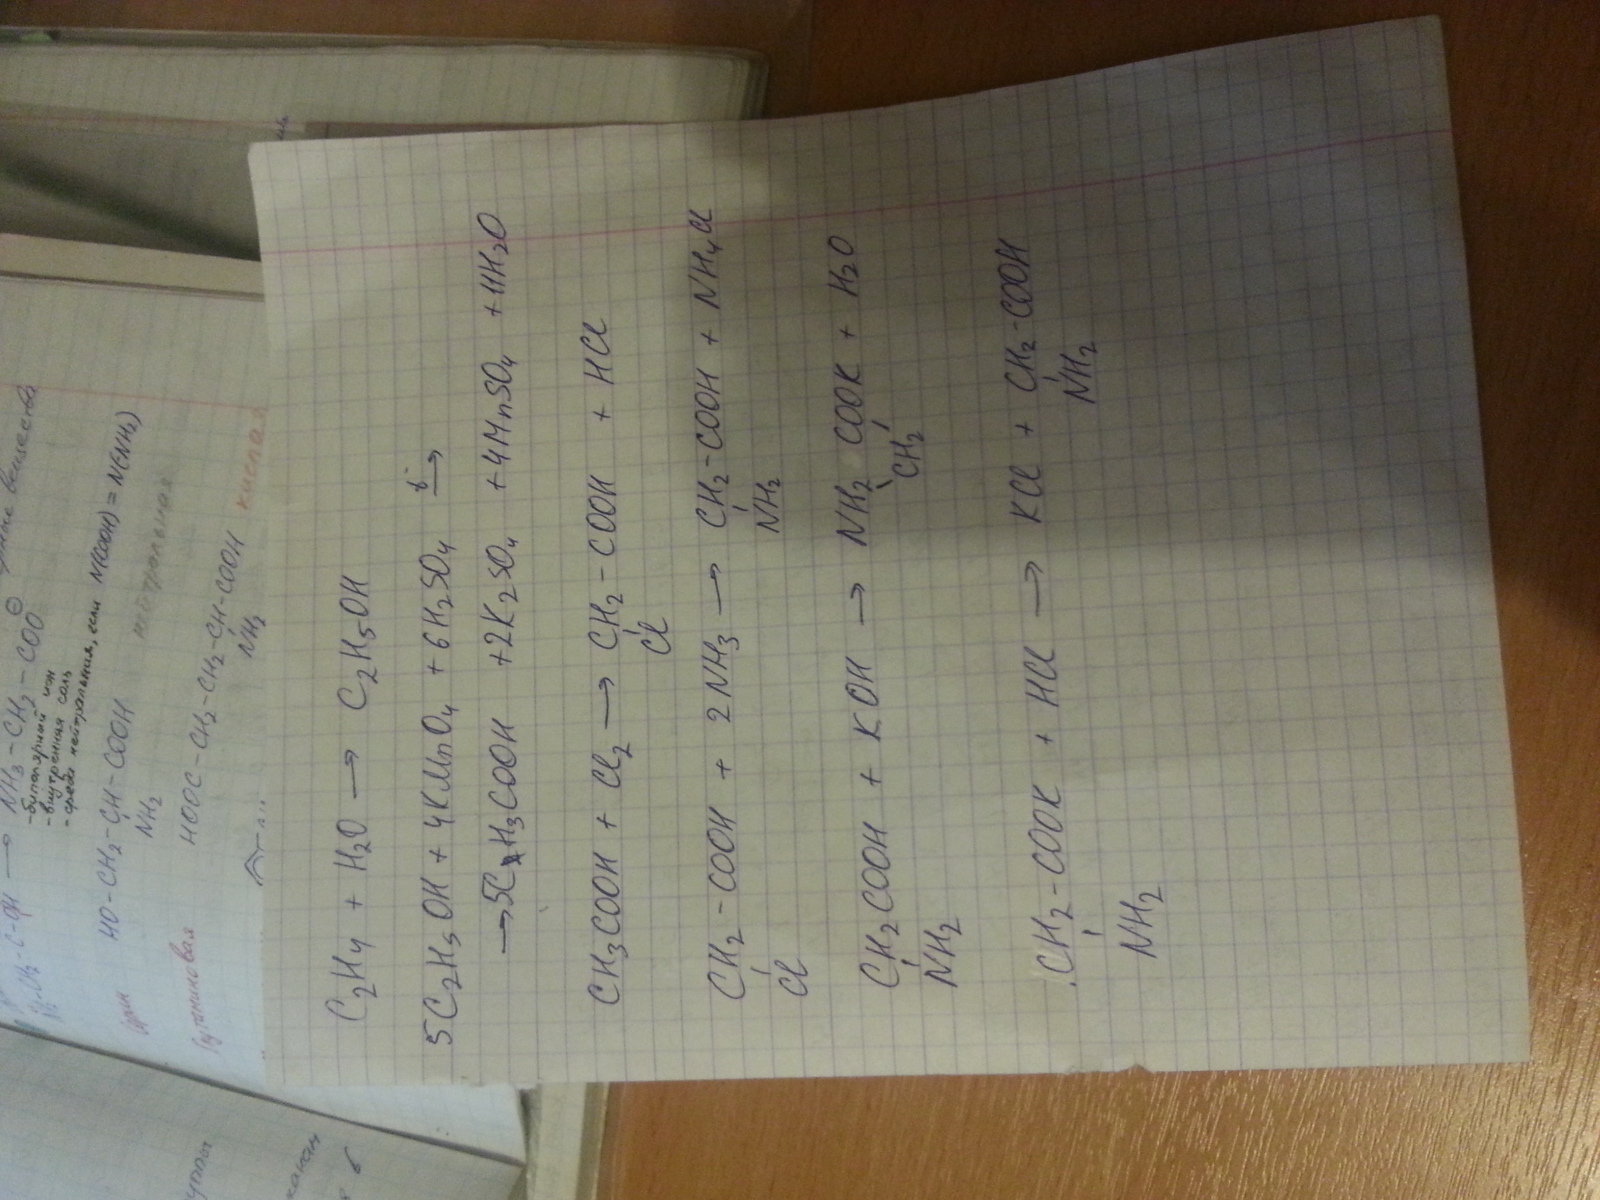 C2H4 + H2O → C2H5OH
5C2H5OH + 4KMnO4 + 6H2SO4 t→
→ 5CH3COOH + 2K2SO4 + 4MnSO4 + 11H2O
CH3COOH + Cl2 → CH2-COOH + HCl
Cl
CH2-COOH + 2NH3 → CH2-COOH + NH4Cl
Cl NH2
CH2COOH + KOH → NH2 COOK + H2O
NH2 CH2
CH2-COOK + HCl → KCl + CH2-COOH
NH2 NH2
NH3-CH2-COO⊖
-биполярный ион
-внутренняя соль
-среда нейтральная, если N(COOH) = N(NH2)
HO-CH2-CH-COOH нейтральная
NH2
HOOC-CH2-CH2-CH-COOH кислая
NH2